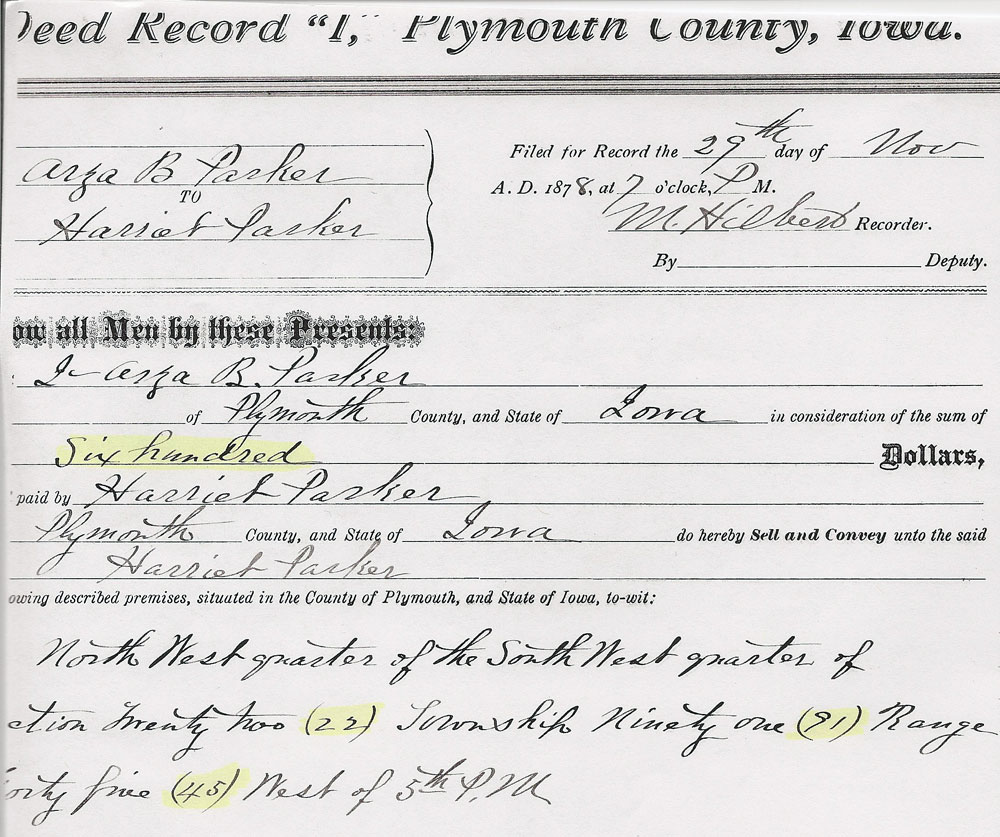 Deed Record "I," Plymouth County, Iowa.
Arza B Parker
TO
Harriet Parker
Filed for Record the 29th day of Nov
A. D. 1878, at 7 o'clock, P M.
M. Hilbert Recorder.
By Deputy.
ow all Men by these Presents:
I Arza B. Parker
of Plymouth County, and State of Iowa in consideration of the sum of
Six hundred Dollars,
paid by Harriet Parker
Plymouth County, and State of Iowa do hereby Sell and Convey unto the said
Harriet Parker
owing described premises, situated in the County of Plymouth, and State of Iowa, to-wit:
North West quarter of the South West quarter of
ction Twenty two (22) Township Ninety one (91) Range
orty five (45) West of 5th P.M